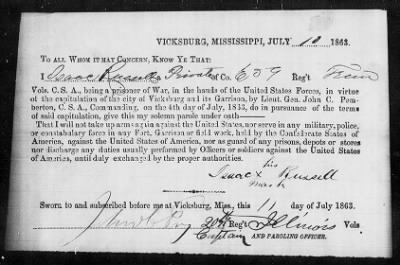 VICKSBURG, MISSISSIPPI, JULY 10 1863.
TO ALL WHOM IT MAY CONCERN, KNOW YE THAT:
I Isaac Russell a Private of Co. E 59 Reg't Tenn
Vols. C. S. A., being a prisoner of War, in the hands of the United States Forces, in virtue
of the capitulation of the city of Vicksburg and its Garrison, by Lieut. Gen. John C. Pem-
berton, C. S. A., Commanding, on the 4th day of July, 1863, do in pursuance of the terms
of said capitulation, give this my solemn parole under oath——
That I will not take up arms again against the United States, nor serve in any military, police,
or constabulary force in any Fort, Garrison or field work, held by the Confederate States of
America, against the United States of America, nor as guard of any prisons, depots or stores
nor discharge any duties usually performed by Officers or soldiers against the United States
of America, until duly exchanged by the proper authorities.
his
Isaac x Russell
mark
Sworn to and subscribed before me at Vicksburg, Miss., this 11 day of July 1863.
20th Reg't Illinois Vols
Captain AND PAROLING OFFICER.